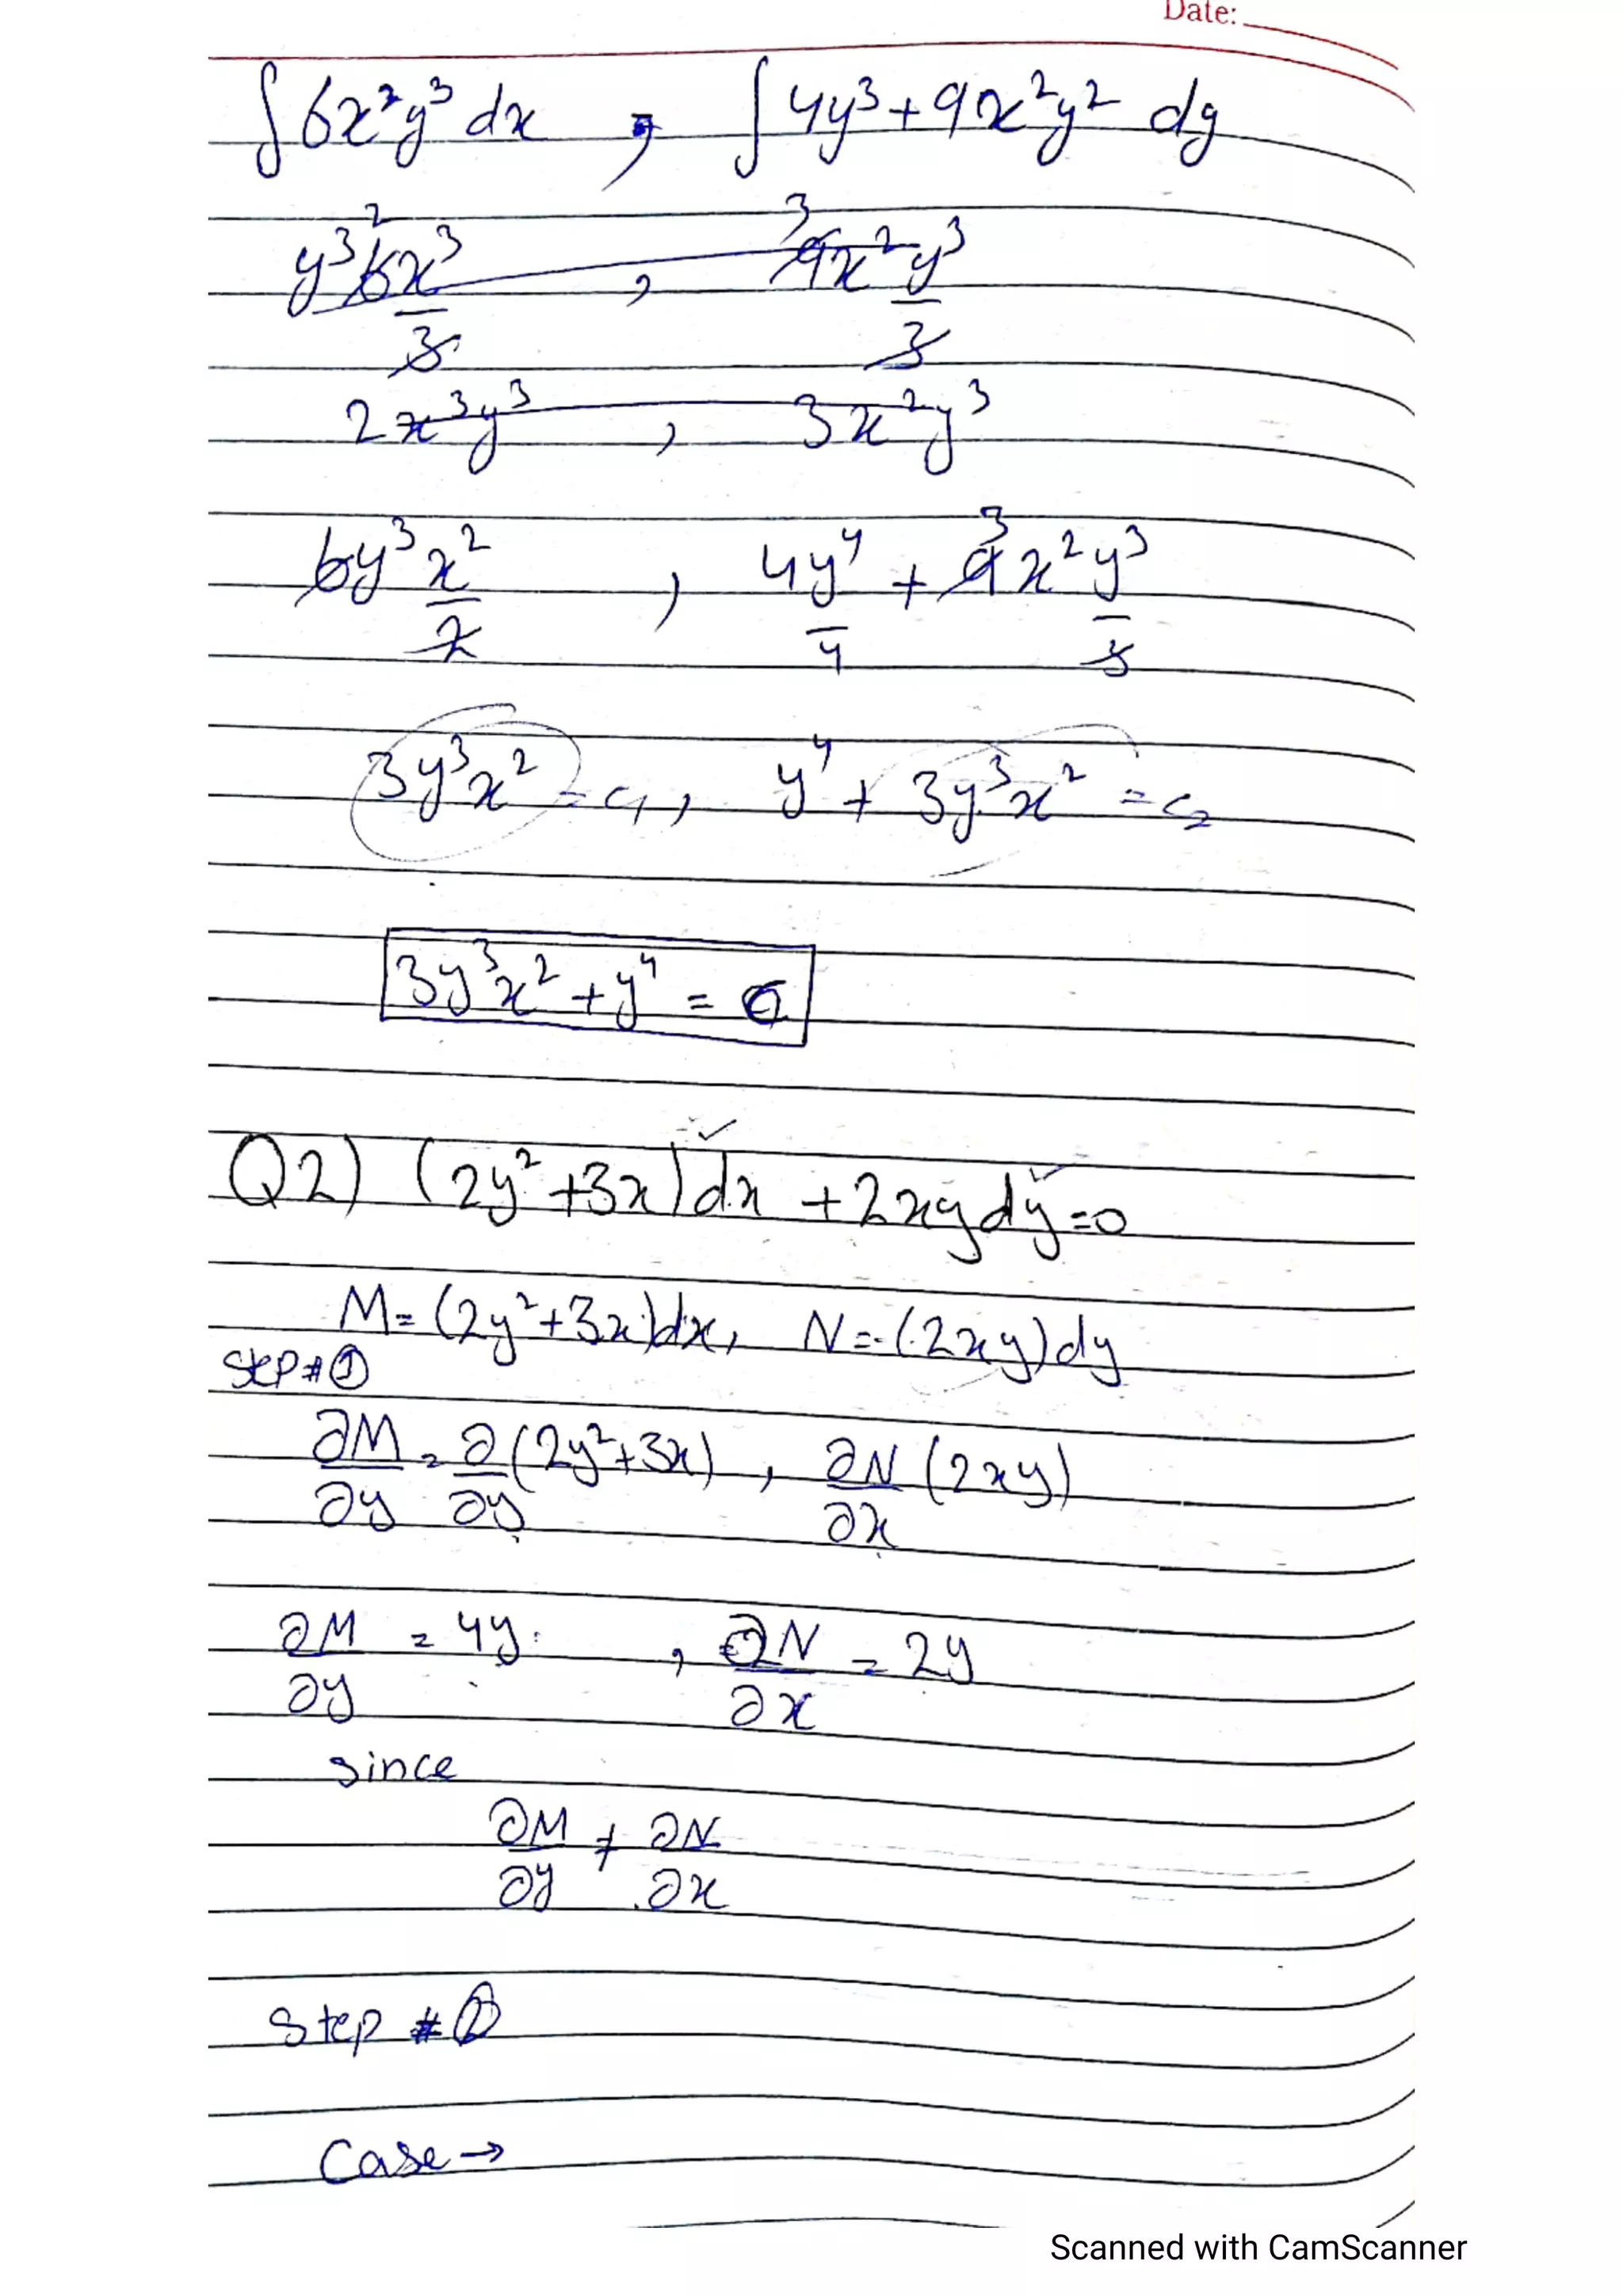 Date:
∫6x²y³ dx , ∫4y³+9x²y² dy
y³6x³/3 2 , 9x²y³/3 3
2x³y³ , 3x²y³
6y³x²/2 , 4y⁴/4 + 9x²y³/3 3
3y³x² = c₁, y⁴ + 3y³x² = c₂
3y³x² + y⁴ = C
Q2) (2y²+3x)dx + 2xydy=0
M=(2y²+3x)dx, N=(2xy)dy
Step#①
∂M/∂y = ∂/∂y(2y²+3x), ∂N/∂x(2xy)
∂M/∂y = 4y , ∂N/∂x = 2y
since
∂M/∂y ≠ ∂N/∂x
Step #②
Case→
Scanned with CamScanner